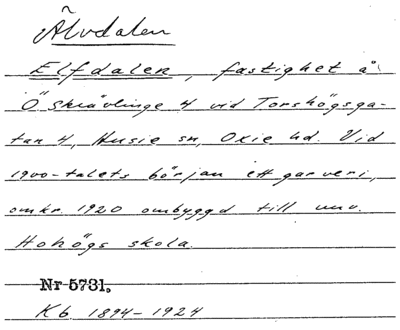 Älvdalen
Elfdalen, fastighet å
Ö Skrävlinge 4 vid Torshögsga-
tan 4, Husie sn, Oxie hd. Vid
1900-talets början ett garveri,
omkr. 1920 ombyggd till nuv.
Hohögs skola.
Nr 5731.
Kb. 1894-1924